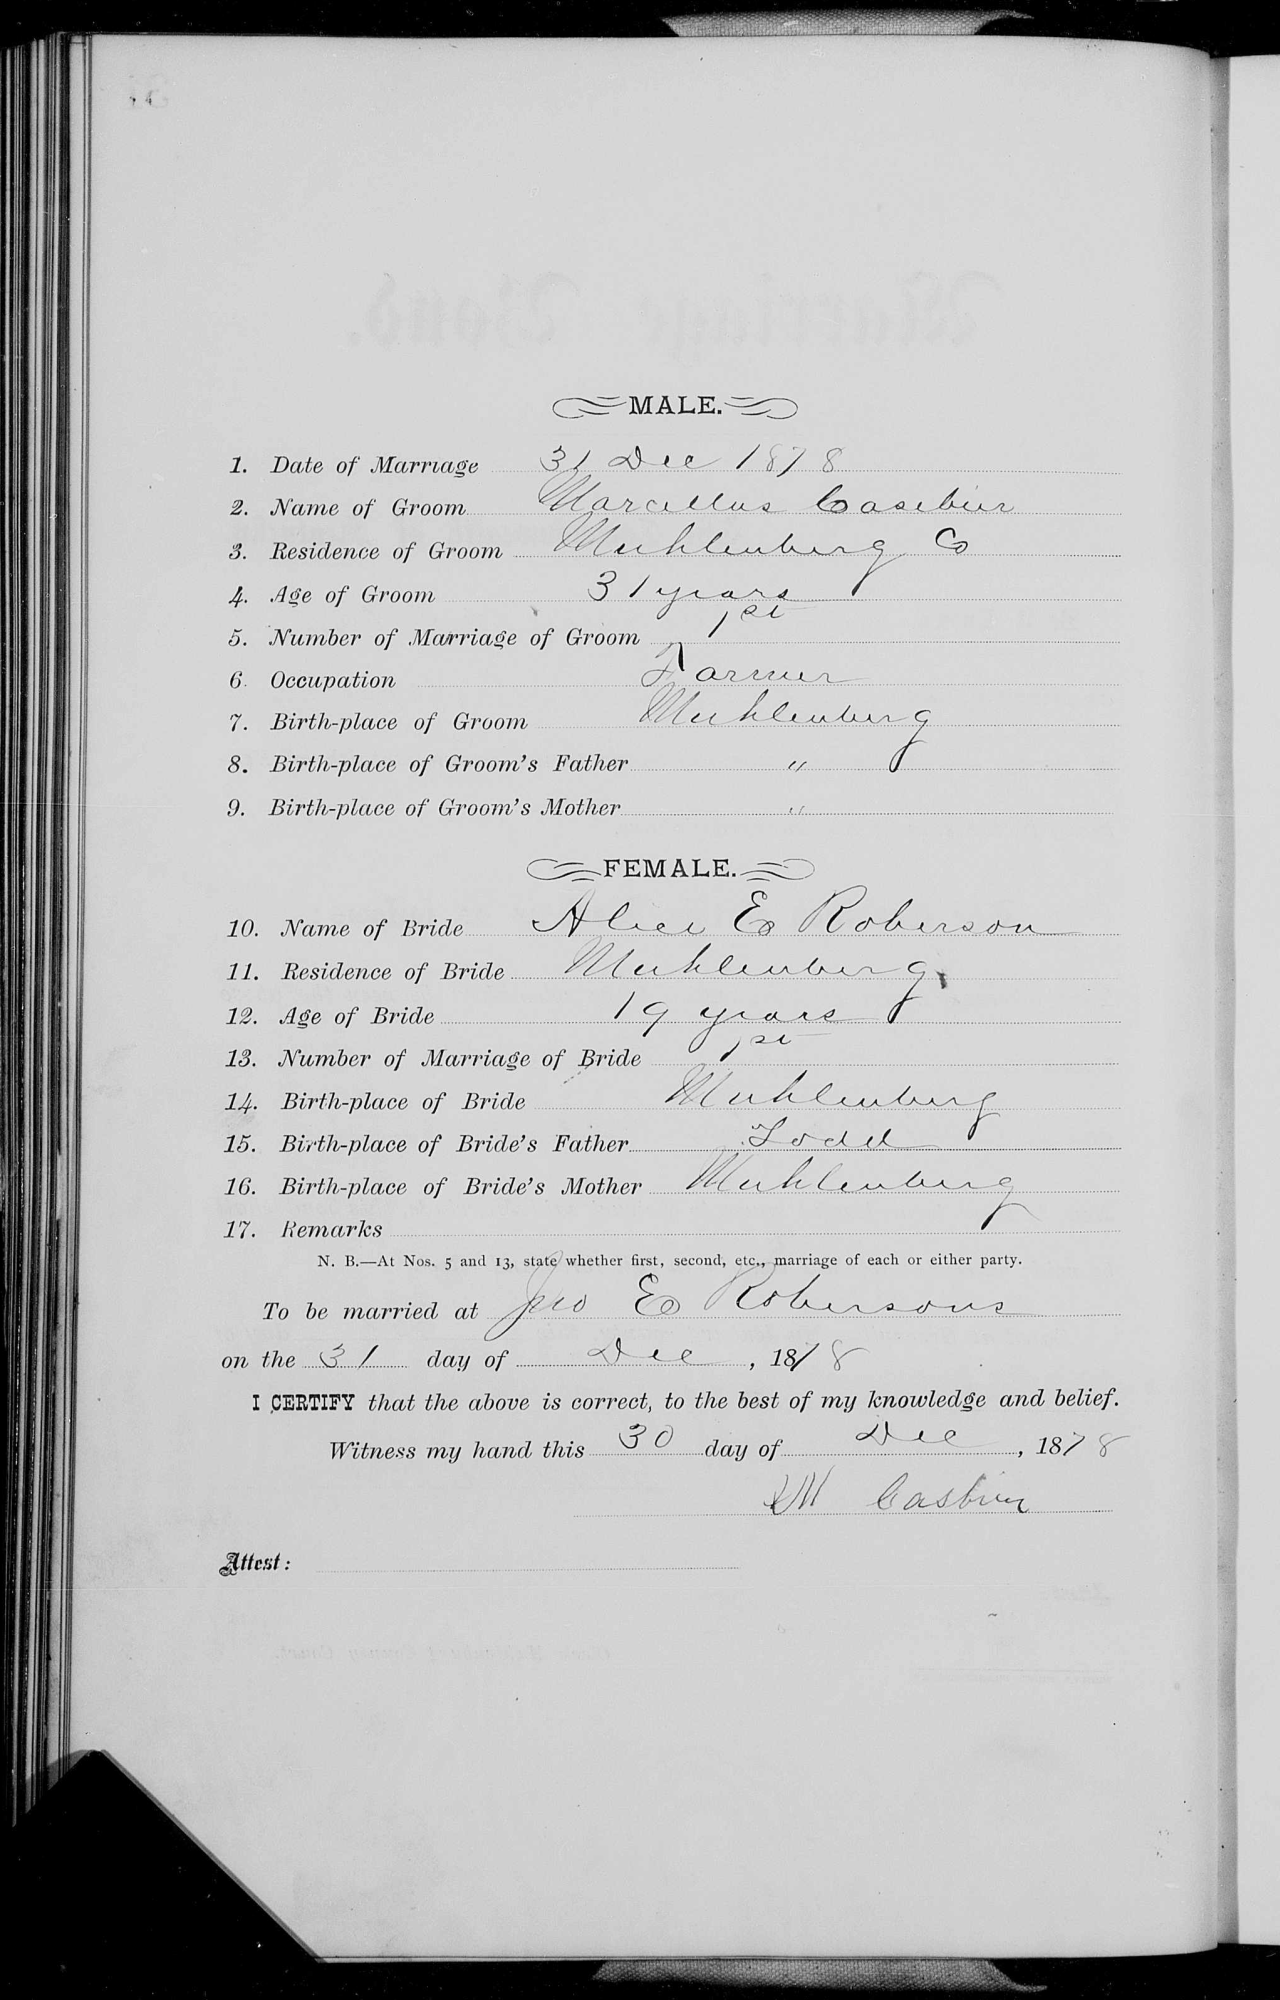 MALE.
1. Date of Marriage 31 Dec 1878
2. Name of Groom Marcellus Casebier
3. Residence of Groom Muhlenberg Co
4. Age of Groom 31 years
5. Number of Marriage of Groom 1st
6. Occupation Farmer
7. Birth-place of Groom Muhlenberg
8. Birth-place of Groom's Father "
9. Birth-place of Groom's Mother "
FEMALE.
10. Name of Bride Alice E Roberson
11. Residence of Bride Muhlenberg
12. Age of Bride 19 years
13. Number of Marriage of Bride 1st
14. Birth-place of Bride Muhlenberg
15. Birth-place of Bride's Father Todd
16. Birth-place of Bride's Mother Muhlenberg
17. Remarks
N. B.—At Nos. 5 and 13, state whether first, second, etc., marriage of each or either party.
To be married at Jno E Robersons
on the 31 day of Dec, 1878
I CERTIFY that the above is correct, to the best of my knowledge and belief.
Witness my hand this 30 day of Dec, 1878
Casbier
Attest: